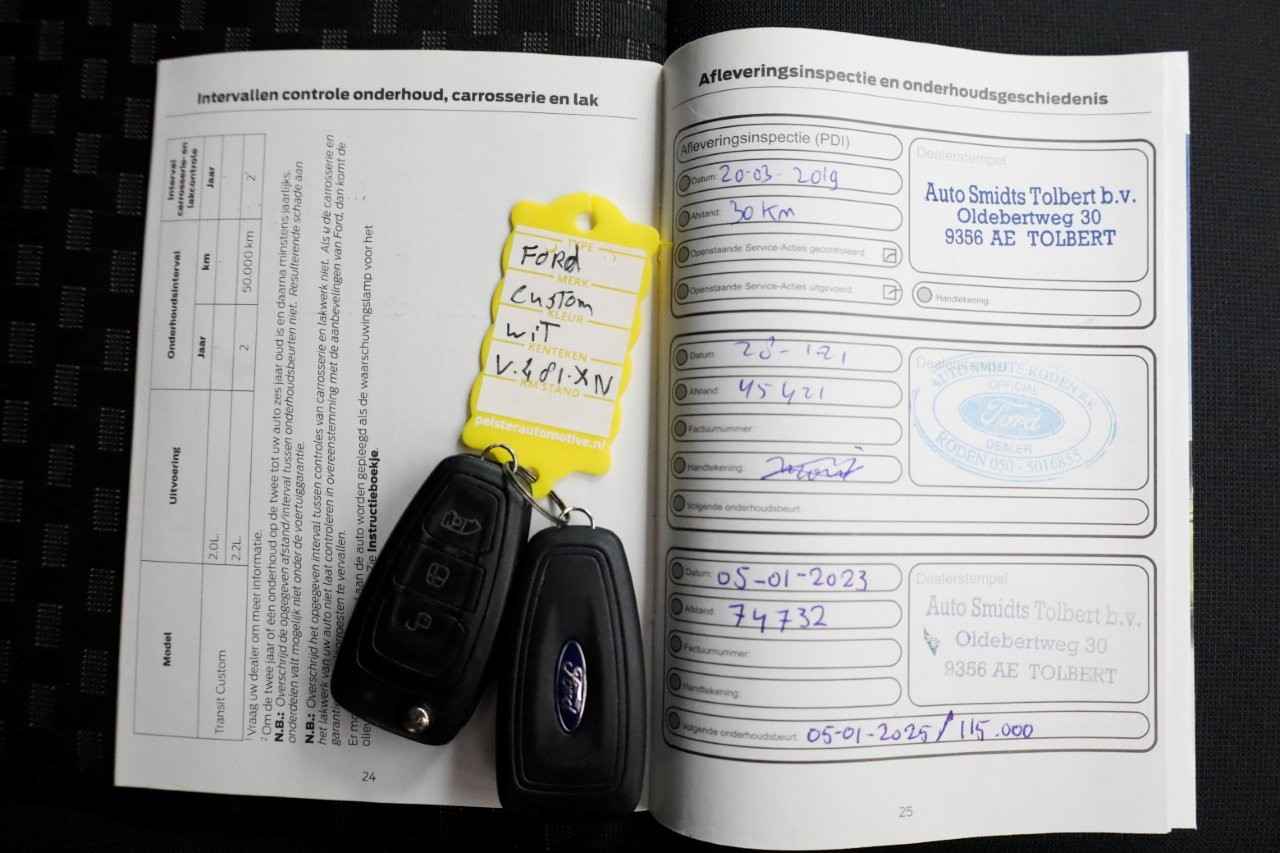 Intervallen controle onderhoud, carrosserie en lak
Model
Uitvoering
Onderhoudsinterval
Interval carrosserie- en lakcontrole
Jaar
km
Jaar
Transit Custom
2.0L.
2
50.000 km
2
2.2L.
¹ Vraag uw dealer om meer informatie.
² Om de twee jaar of één onderhoud op de twee tot uw auto zes jaar oud is en daarna minstens jaarlijks.
N.B.: Overschrijd de opgegeven afstand/interval tussen onderhoudsbeurten niet. Resulterende schade aan
onderdelen valt mogelijk niet onder de voertuiggarantie.
N.B.: Overschrijd het opgegeven interval tussen controles van carrosserie en lakwerk niet. Als u de carrosserie en
het lakwerk van uw auto niet laat controleren in overeenstemming met de aanbevelingen van Ford, dan komt de
aan de auto worden gepleegd als de waarschuwingslamp voor het
Zie Instructieboekje.
24
TYPE
FORd
MERK
Custom
KLEUR
wiT
KENTEKEN
V.481.XN
KM STAND
pelsterautomotive.nl
Ford
Afleveringsinspectie en onderhoudsgeschiedenis
Afleveringsinspectie (PDI)
Datum: 20-03-2019
Afstand: 30 Km
Openstaande Service-Acties gecontroleerd
Openstaande Service-Acties uitgevoerd
Dealerstempel
Auto Smidts Tolbert b.v.
Oldebertweg 30
9356 AE TOLBERT
Handtekening:
Datum:
Afstand: 45421
Factuurnummer:
Handtekening:
Volgende onderhoudsbeurt:
Dealerstempel
OFFICIAL
Ford
DEALER
RODEN 050 - 5016655
Datum: 05-01-2023
Afstand: 74732
Factuurnummer:
Handtekening:
Volgende onderhoudsbeurt: 05-01-2025 / 115.000
Dealerstempel
Auto Smidts Tolbert b.v.
Oldebertweg 30
9356 AE TOLBERT
25